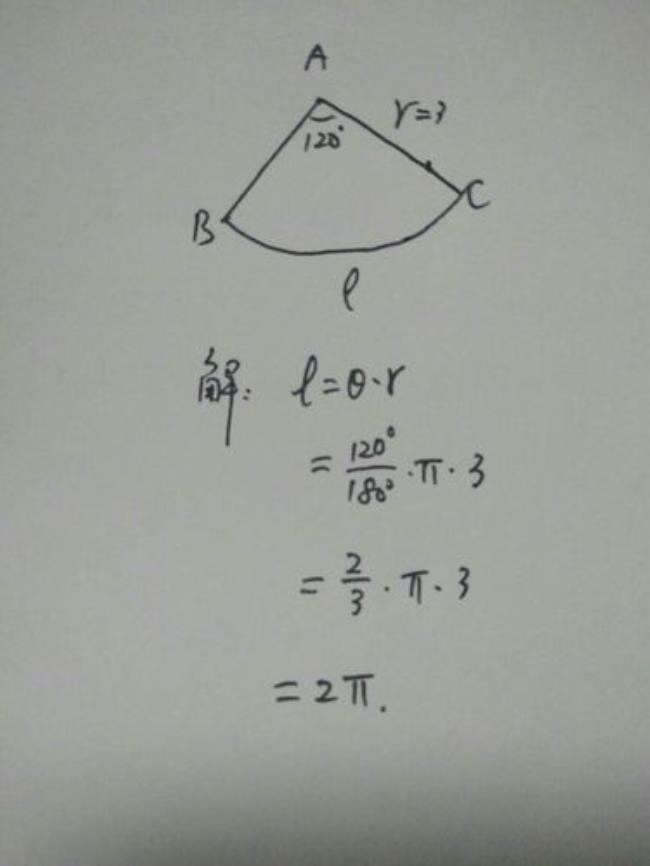 A
r=3
120°
B
C
l
解: l=θ·r
=120°/180°·π·3
=2/3·π·3
=2π.